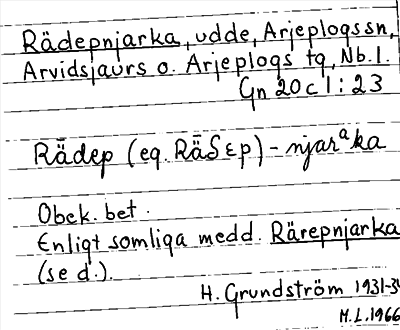 Rädepnjarka, udde, Arjeplogssn,
Arvidsjaurs o. Arjeplogs tg, Nb.l.
Gn 20 c 1 : 23
Rädep (eg. Räδεp) - njarᵃka
Obek. bet.
Enligt somliga medd. Rärepnjarka
(se d.).
H. Grundström 1931-34
M.L. 1966